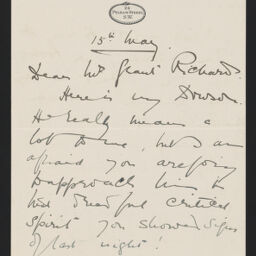 24
PELHAM STREET
S.W.
15th May.
Dear Mr Grant Richards.
Here is my Dowson.
He really means a
lot to me, but I am
afraid you are going
to approach him in
the dreadful critical
spirit you showed signs
of last night!